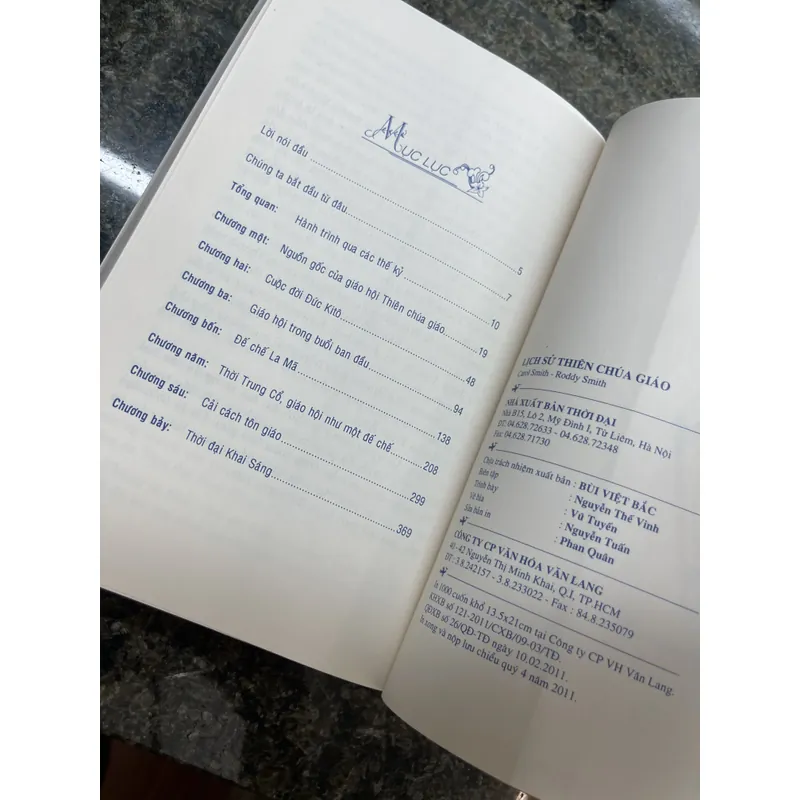 MỤC LỤC
Lời nói đầu 5
Chúng ta bắt đầu từ đâu 7
Tổng quan: Hành trình qua các thế kỷ 10
Chương một: Nguồn gốc của giáo hội Thiên chúa giáo 19
Chương hai: Cuộc đời Đức Kitô 48
Chương ba: Giáo hội trong buổi ban đầu 94
Chương bốn: Đế chế La Mã 138
Chương năm: Thời Trung Cổ, giáo hội như một đế chế 208
Chương sáu: Cải cách tôn giáo 299
Chương bảy: Thời đại Khai Sáng 369
LỊCH SỬ THIÊN CHÚA GIÁO
Carol Smith - Roddy Smith
NHÀ XUẤT BẢN THỜI ĐẠI
Nhà B15, Lô 2, Mỹ Đình I, Từ Liêm, Hà Nội
ĐT: 04.628.72633 - 04.628.72348
Fax: 04.628.71730
Chịu trách nhiệm xuất bản : BÙI VIỆT BẮC
Biên tập : Nguyễn Thế Vinh
Trình bày : Vũ Tuyến
Vẽ bìa : Nguyễn Tuấn
Sửa bản in : Phan Quân
CÔNG TY CP VĂN HÓA VĂN LANG
40 - 42 Nguyễn Thị Minh Khai, Q.I, TP.HCM
ĐT : 3.8.242157 - 3.8.233022 - Fax : 84.8.235079
In 1000 cuốn khổ 13.5x21cm tại Công ty CP VH Văn Lang.
KHXB số 121-2011/CXB/09-03/TĐ.
QĐXB số 26/QĐ-TĐ ngày 10.02.2011.
In xong và nộp lưu chiểu quý 4 năm 2011.